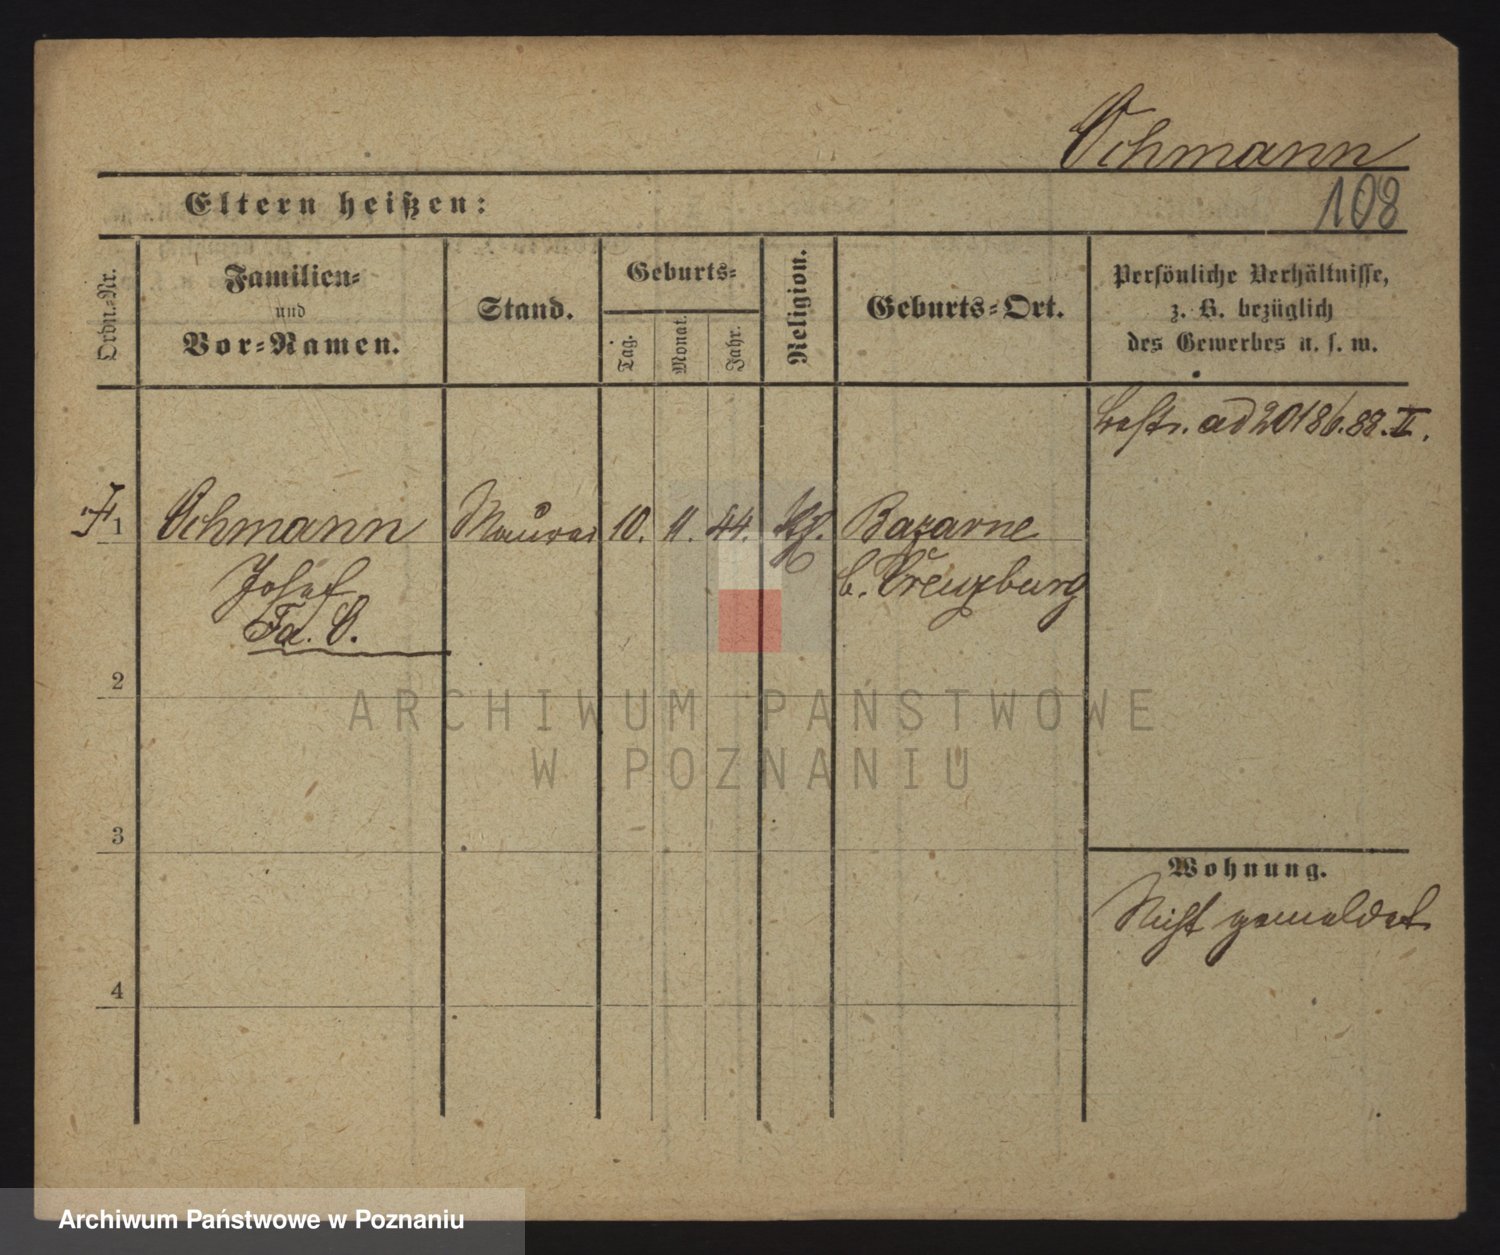 Ochmann
Eltern heißen:
108
Ordn.-Nr.
Familien-
und
Vor-Namen.
Stand.
Geburts-
Tag.
Monat.
Jahr.
Religion.
Geburts-Ort.
Persönliche Verhältnisse,
z. B. bezüglich
des Gewerbes u. s. w.
bestr. ad 20186.88.II.
1
Ochmann
Maurer
10.
11.
44.
Bazarne
Josef
b. Creuzburg
2
ARCHIWUM PAŃSTWOWE
W POZNANIU
3
Wohnung.
Nicht gemeldet
4
Archiwum Państwowe w Poznaniu